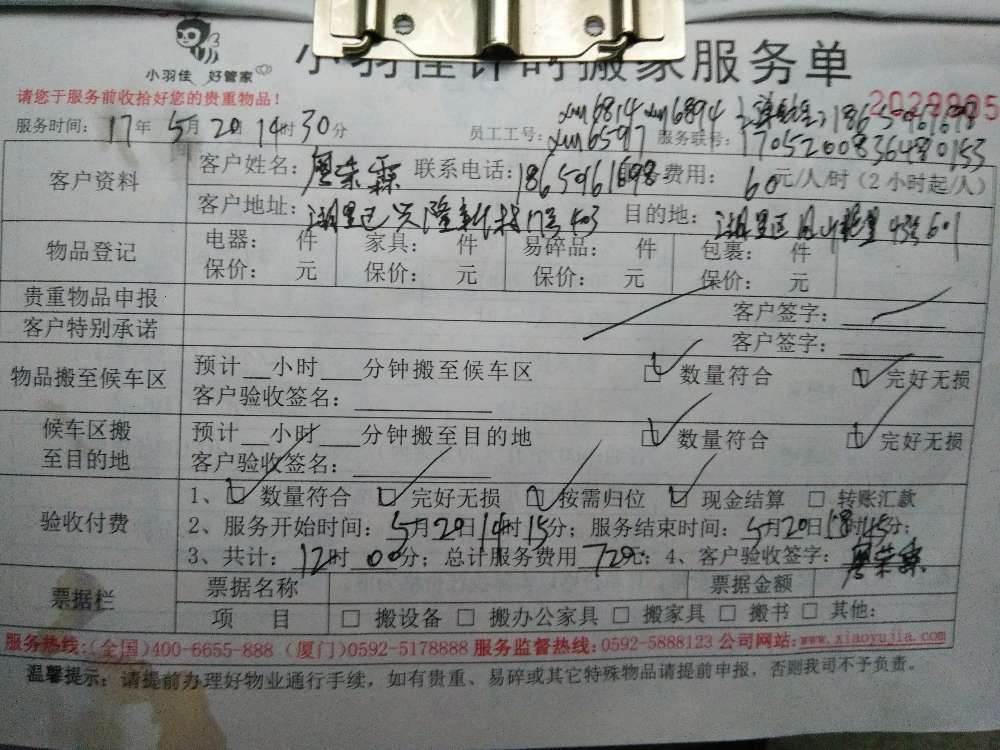 小羽佳 好管家
小羽佳计时搬家服务单
请您于服务前收拾好您的贵重物品！
服务时间：17年5月20 14时30分 员工工号：xm6814 xm6894 xm65997 服务联号：17052008364810153
18659961698
客户资料 客户姓名： 联系电话：18659961698 费用：60元/人/时（2小时起/人）
客户地址：湖里区兴隆 17号403 目的地：湖里区 601
物品登记 电器： 件 家具： 件 易碎品： 件 包裹： 件
保价： 元 保价： 元 保价： 元 保价： 元
贵重物品申报 客户签字：
客户特别承诺 客户签字：
物品搬至候车区 预计__小时___分钟搬至候车区 □ 数量符合 □ 完好无损
客户验收签名：
候车区搬至目的地 预计__小时___分钟搬至目的地 □ 数量符合 □ 完好无损
客户验收签名：
验收付费 1、□ 数量符合 □ 完好无损 □ 按需归位 □ 现金结算 □ 转账汇款
2、服务开始时间：5月20日14时15分；服务结束时间：5月20日18时15分；
3、共计：12时00分；总计服务费用720元；4、客户验收签字：
票据栏 票据名称 票据金额
项 目 □ 搬设备 □ 搬办公家具 □ 搬家具 □ 搬书 □ 其他：
服务热线：(全国)400-6655-888 (厦门)0592-5178888 服务监督热线：0592-5888123 公司网站：www.xiaoyujia.com
温馨提示：请提前办理好物业通行手续，如有贵重、易碎或其它特殊物品请提前申报，否则我司不予负责。